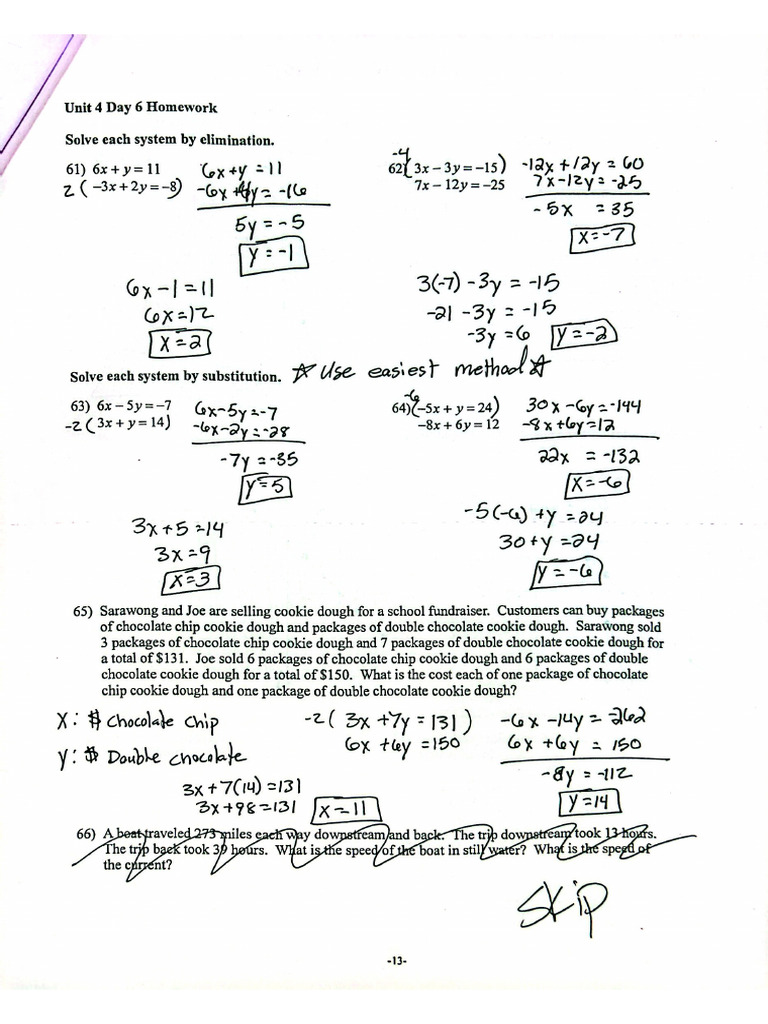 Unit 4 Day 6 Homework
Solve each system by elimination.
61) 6x + y = 11
2 ( -3x + 2y = -8)
6x + y = 11
-6x + 4y = -16
5y = -5
y = -1
6x - 1 = 11
6x = 12
x = 2
-4
62) ( 3x - 3y = -15)
7x - 12y = -25
-12x + 12y = 60
7x - 12y = -25
-5x = 35
x = -7
3(-7) - 3y = -15
-21 - 3y = -15
-3y = 6
y = -2
Solve each system by substitution. ☆ Use easiest method ☆
63) 6x - 5y = -7
-2 ( 3x + y = 14)
6x - 5y = -7
-6x - 2y = -28
-7y = -35
y = 5
3x + 5 = 14
3x = 9
x = 3
-6
64) (-5x + y = 24)
-8x + 6y = 12
30x - 6y = -144
-8x + 6y = 12
22x = -132
x = -6
-5(-6) + y = 24
30 + y = 24
y = -6
65) Sarawong and Joe are selling cookie dough for a school fundraiser. Customers can buy packages
of chocolate chip cookie dough and packages of double chocolate cookie dough. Sarawong sold
3 packages of chocolate chip cookie dough and 7 packages of double chocolate cookie dough for
a total of $131. Joe sold 6 packages of chocolate chip cookie dough and 6 packages of double
chocolate cookie dough for a total of $150. What is the cost each of one package of chocolate
chip cookie dough and one package of double chocolate cookie dough?
X: $ Chocolate chip
Y: $ Double chocolate
-2 ( 3x + 7y = 131 )
6x + 6y = 150
-6x - 14y = 262
6x + 6y = 150
-8y = -112
y = 14
3x + 7(14) = 131
3x + 98 = 131
x = 11
66) A boat traveled 273 miles each way downstream and back. The trip downstream took 13 hours.
The trip back took 39 hours. What is the speed of the boat in still water? What is the speed of
the current?
Skip
-13-